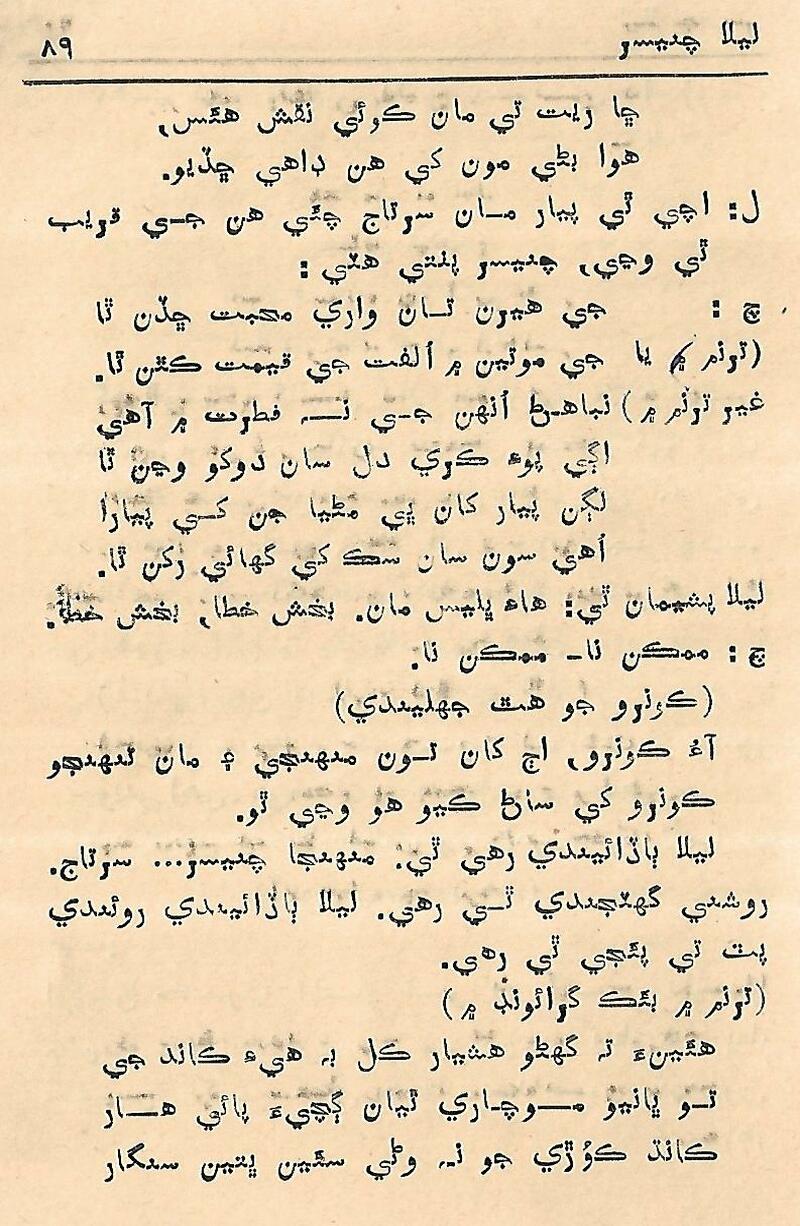 ليلا چنيسر ۸۹
ڇا ريت تي مان ڪوئي نقش هئس،
هوا بڻي مون کي هن ڊاهي ڇڏيو.
ل: اچي ٿي پيار مان سرتاج چئي هن جي قريب
ٿي وڃي، چنيسر پلٽي هڻي:
چ: جي هيرن تان واري محبت ڇڏن ٿا
(ترنم ۾ يا جي موتين ۾ اُلفت جي قيمت ڪٿن ٿا.
غير ترنم ۾) نباهڻ اُنهن جي نہ فطرت ۾ آهي
اڳي پوءِ ڪري دل سان دوکو وڃن ٿا
لڳن پيار کان ٻي مڻيا جن کي پيارا
اُهي سون سان سڪ کي گهائي رکن ٿا.
ليلا پشيمان ٿي: هاءِ ڀليس مان. بخش خطا، بخش خطا.
چ: ممڪن نا۔ ممڪن نا.
(ڪونرو جو هٿ جهليندي)
آءُ ڪونرو، اڄ کان تون منهنجي ۽ مان تنهنجو
ڪونرو کي ساڻ ڪيو هو وڃي ٿو.
ليلا ٻاڏائيندي رهي ٿي. منهنجا چنيسر... سرتاج.
روشني گهٽجندي ٿي رهي. ليلا ٻاڏائيندي روئندي
پٽ تي پئجي ٿي رهي.
(ترنم ۾ بئڪ گرائونڊ ۾)
هئينءَ تہ گهڻو هشيار ڪل بہ هيءِ ڪانڌ جي
تو ڀانيو موچاري ٿيان ڳچيءَ پائي هار
ڪانڌ ڪُوڙي جو نہ وڻي سئين ڀتين سنگار